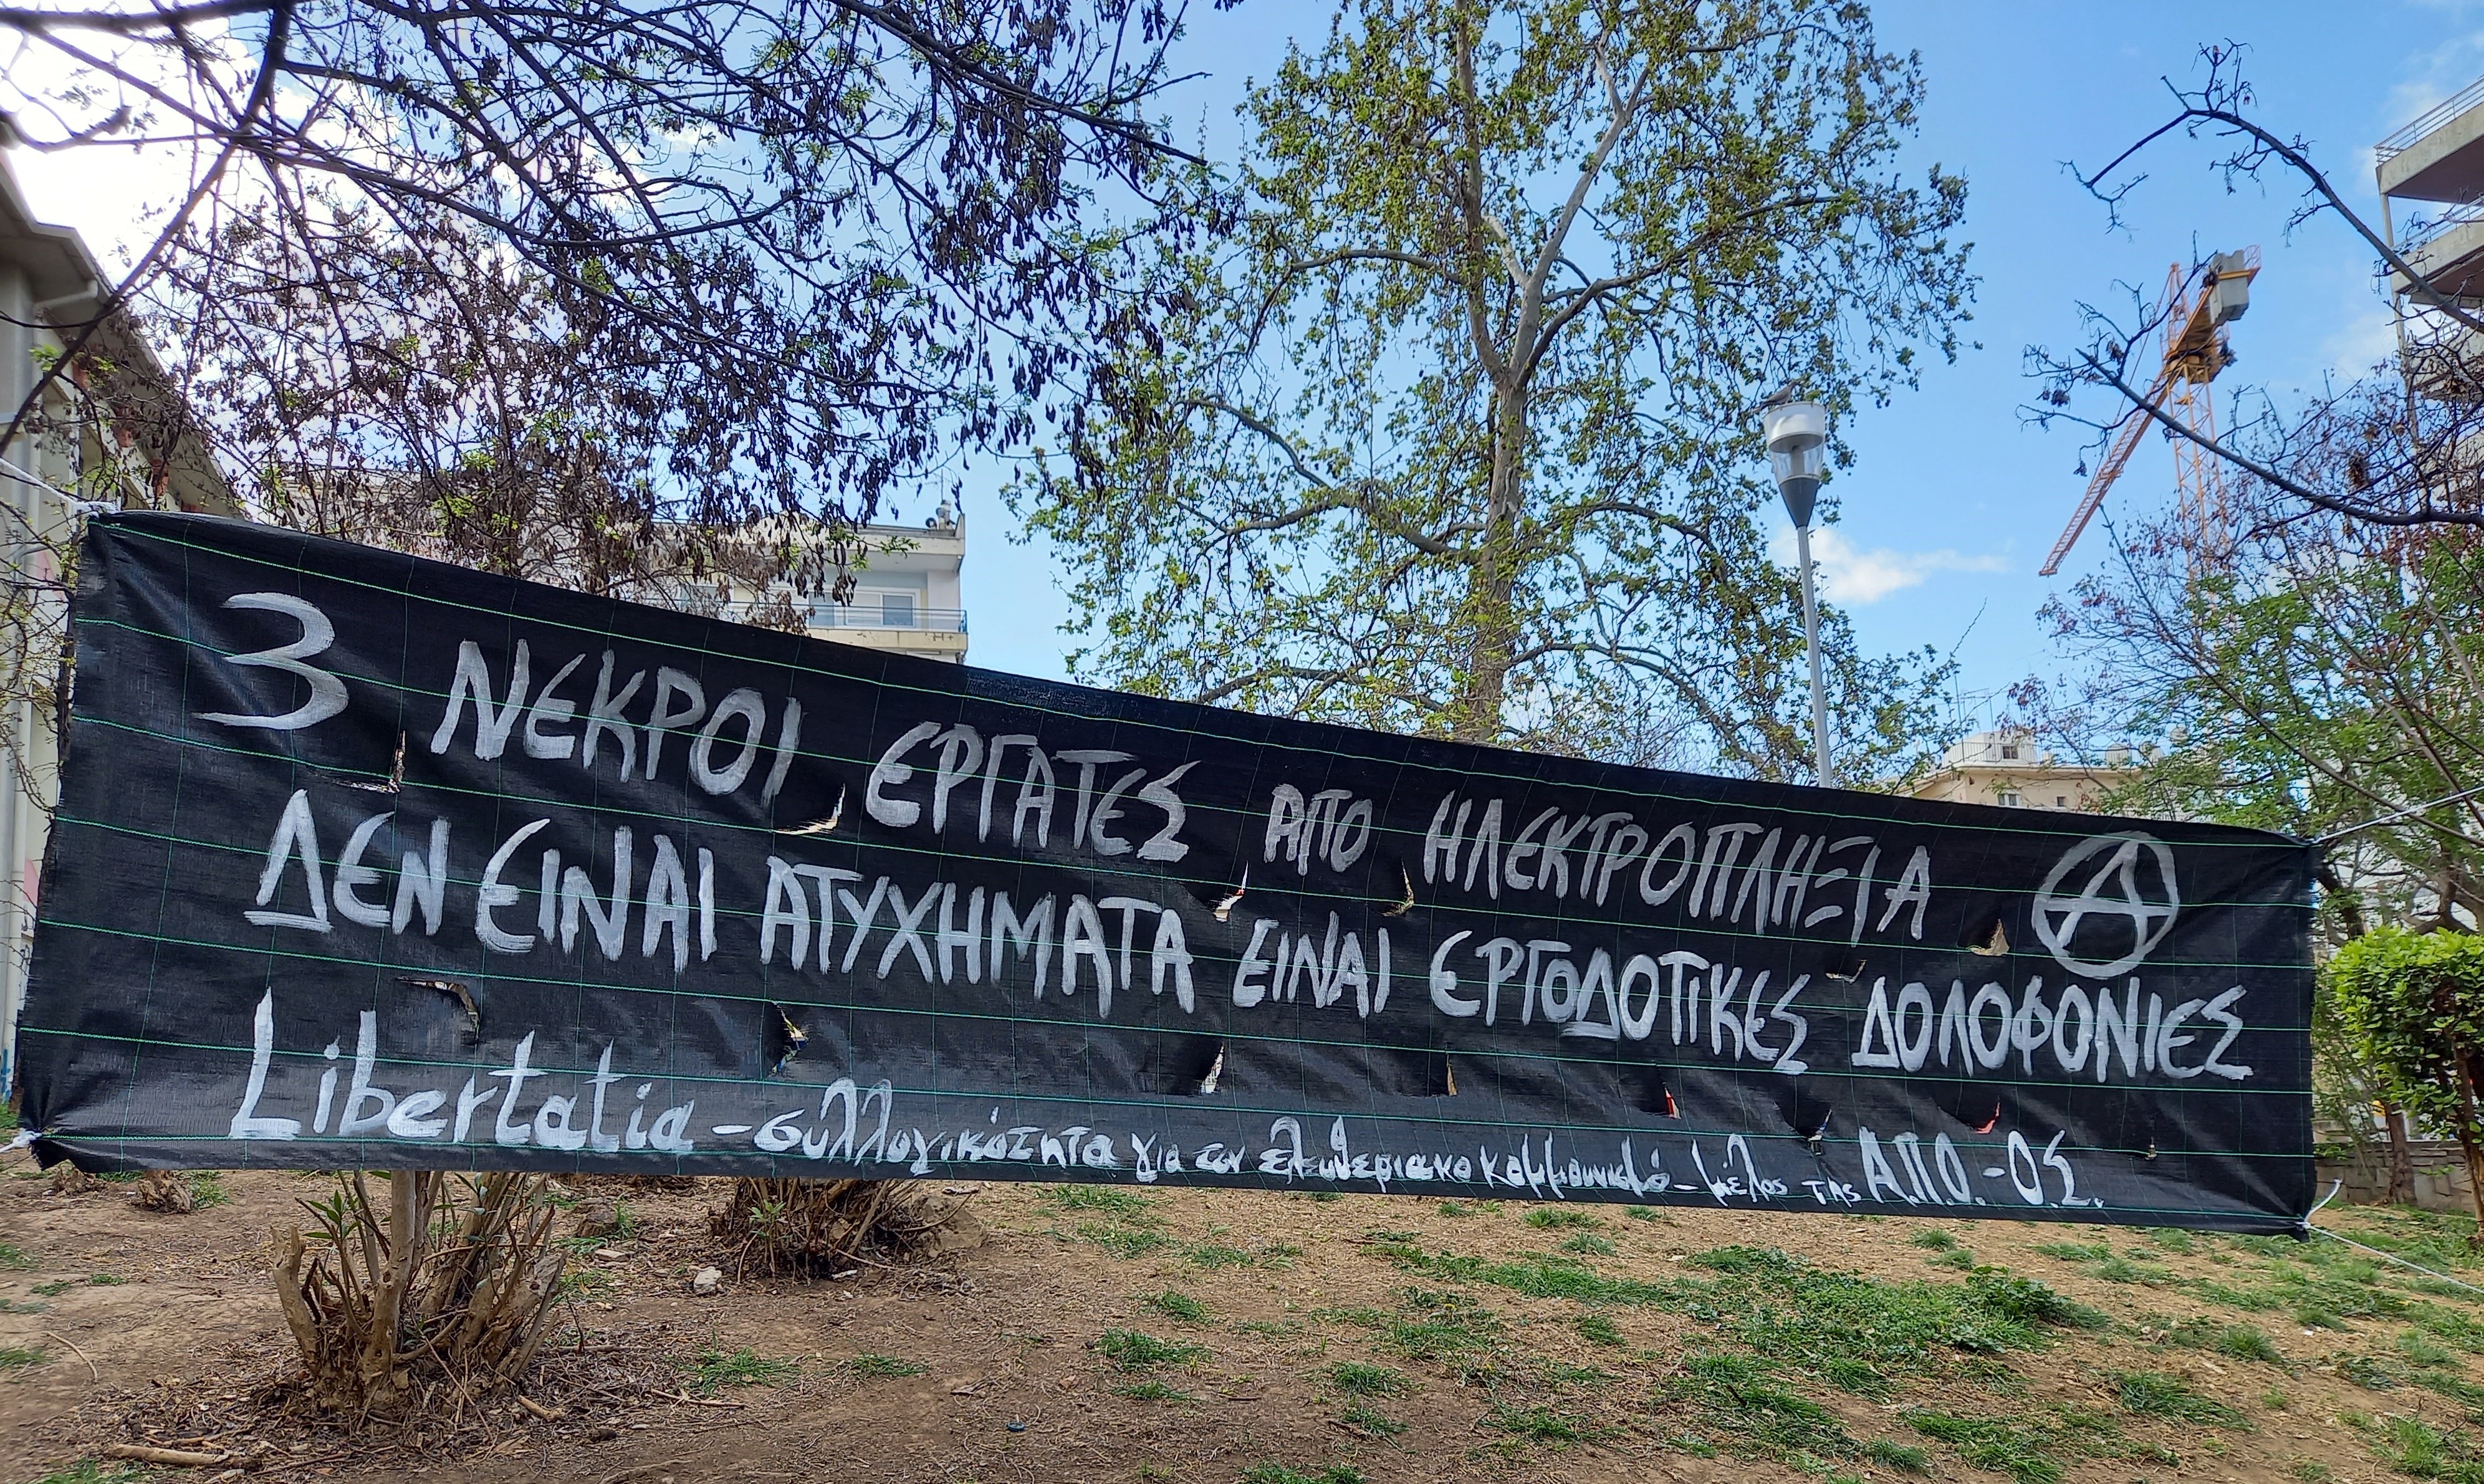 3 ΝΕΚΡΟΙ ΕΡΓΑΤΕΣ ΑΠΟ ΗΛΕΚΤΡΟΠΛΗΞΙΑ Ⓐ
ΔΕΝ ΕΙΝΑΙ ΑΤΥΧΗΜΑΤΑ ΕΙΝΑΙ ΕΡΓΟΔΟΤΙΚΕΣ ΔΟΛΟΦΟΝΙΕΣ
Libertatia - συλλογικότητα για τον ελευθεριακό κομμουνισμό - μέλος της Α.Π.Ο. - Ο.Σ.